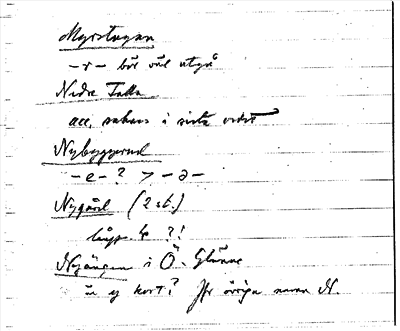 Myrstugan
-r- bör väl utgå
Nedre Talla
acc. saknas i sista ordet
Nybyggerud
-e-? > -ə-
Nygård (2 st.)
långt ?!
Nyängen i Ö. Glänne
ej kort? Jfr övriga namn N.